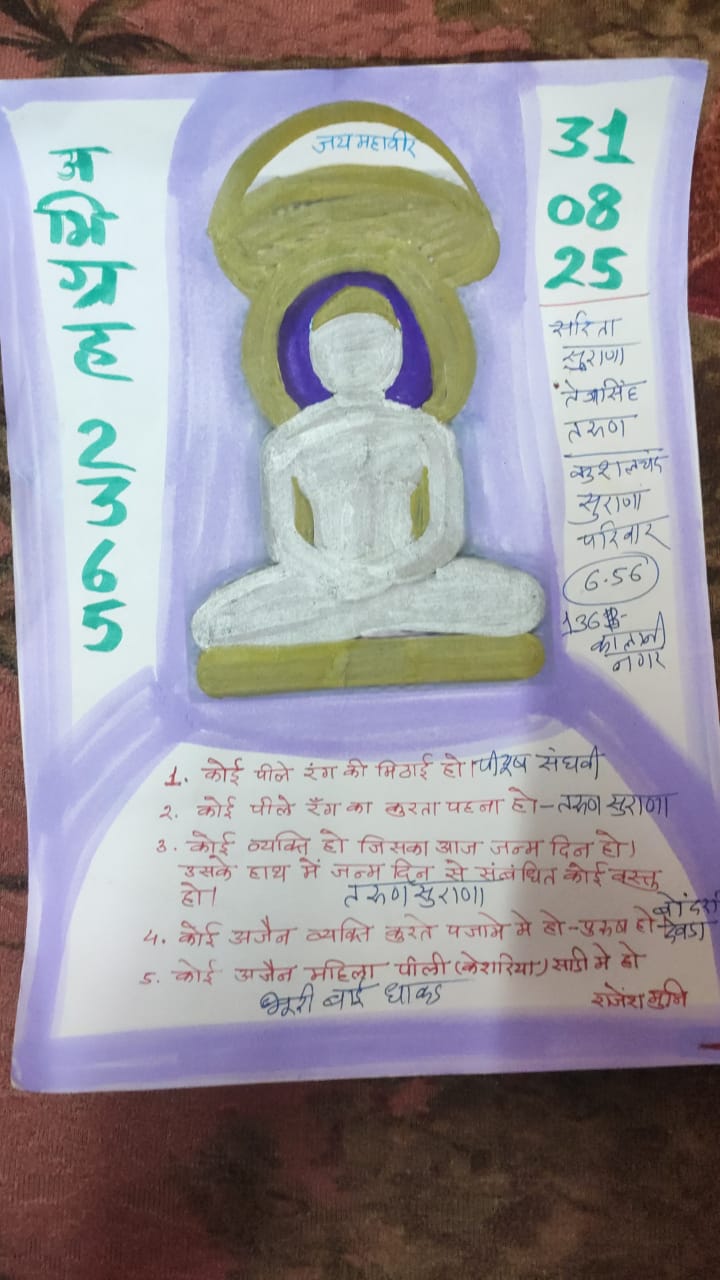 जय महावीर
अभिग्रह 2365
31
08
25
सरिता
सुराणा
तेजसिंह
तरुण
कुशलचंद
सुराणा
परिवार
6.56
136
नगर
1. कोई पीले रंग की मिठाई हो। पीयूष संघवी
2. कोई पीले रँग का कुरता पहना हो - तरुण सुराणा
3. कोई व्यक्ति हो जिसका आज जन्म दिन हो।
उसके हाथ में जन्म दिन से संबंधित कोई वस्तु
हो। तरुण सुराणा
4. कोई अजैन व्यक्ति कुरते पजामे मे हो - पुरुष हो -
5. कोई अजैन महिला पीली (केशरिया) साडी मे हो
भूरी बाई धाकड
राजेश मुनि